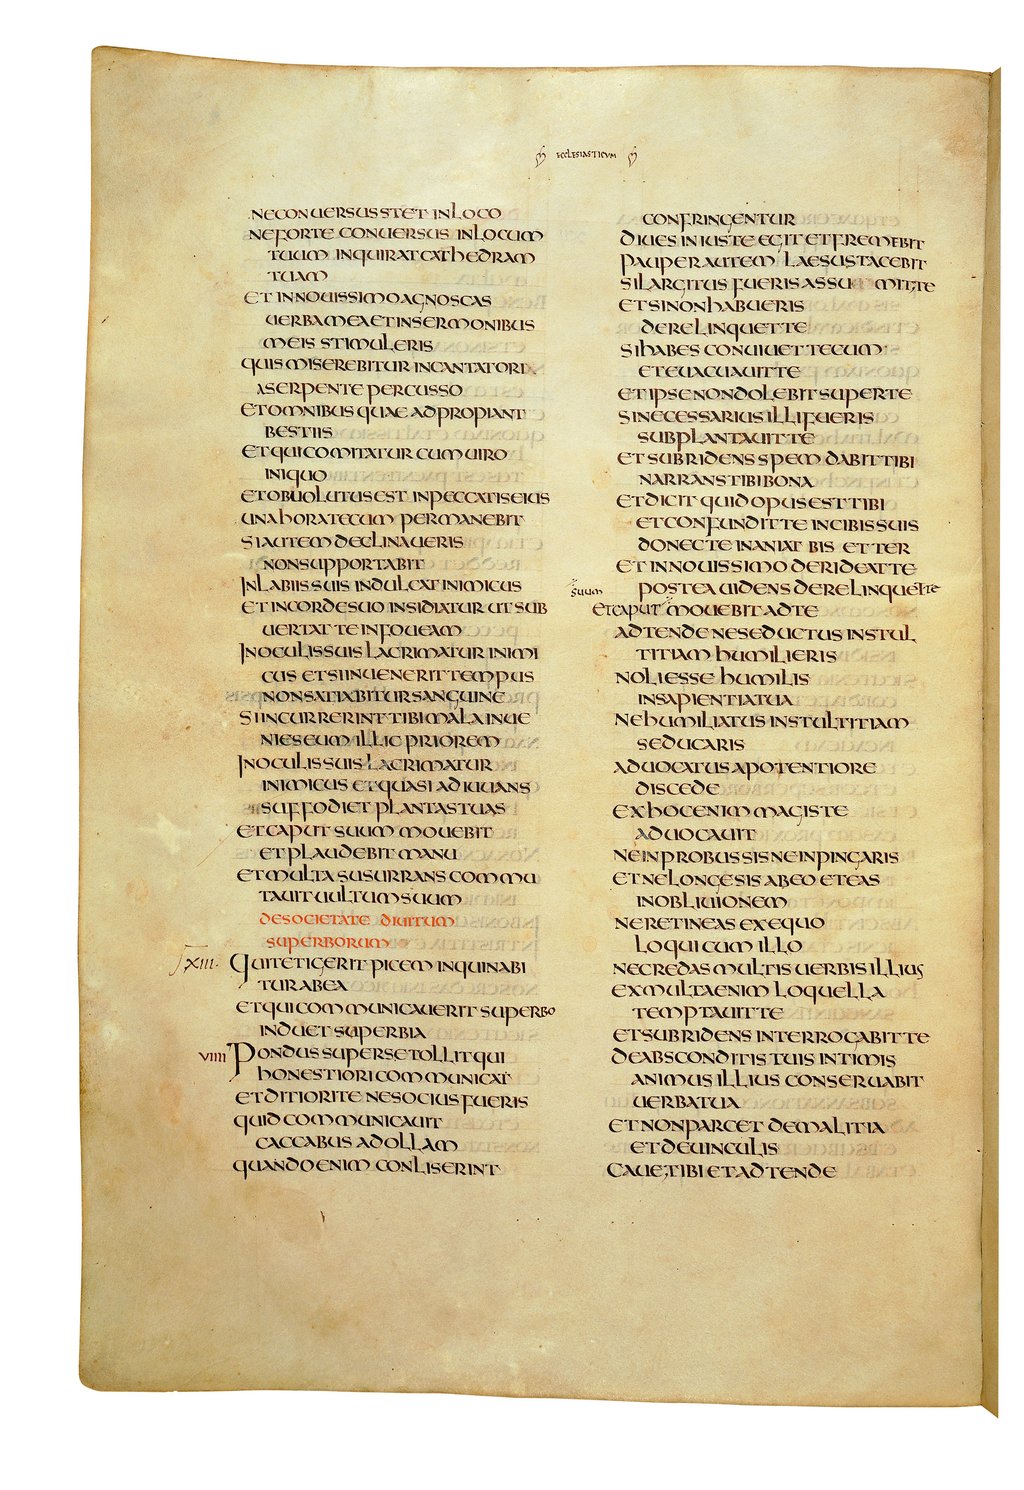 ECCLESIASTICUM
NE CONUERSUS STET IN LOCO
NE FORTE CONUERSUS IN LOCUM
TUUM INQUIRAT CATHEDRAM
TUAM
ET IN NOUISSIMO AGNOSCAS
UERBA MEA ET IN SERMONIBUS
MEIS STIMULERIS
QUIS MISEREBITUR INCANTATORI
A SERPENTE PERCUSSO
ET OMNIBUS QUAE ADPROPIANT
BESTIIS
ET QUI COMITATUR CUM UIRO
INIQUO
ET OBUOLUTUS EST IN PECCATIS EIUS
UNA HORA TECUM PERMANEBIT
SI AUTEM DECLINAUERIS
NON SUPPORTABIT
IN LABIIS SUIS INDULCAT INIMICUS
ET IN CORDE SUO INSIDIATUR UT SUB
UERTAT TE IN FOUEAM
IN OCULIS SUIS LACRIMATUR INIMI
CUS ET SI INUENERIT TEMPUS
NON SATIABITUR SANGUINE
SI INCURRERINT TIBI MALA INUE
NIES EUM ILLIC PRIOREM
IN OCULIS SUIS LACRIMATUR
INIMICUS ET QUASI ADIUUANS
SUFFODIET PLANTAS TUAS
ET CAPUT SUUM MOUEBIT
ET PLAUDEBIT MANU
ET MULTA SUSURRANS COMMU
TAUIT UULTUM SUUM
DE SOCIETATE DIUITUM
SUPERBORUM
XIII. QUI TETIGERIT PICEM INQUINABI
TUR AB EA
ET QUI COMMUNICAUERIT SUPERBO
INDUET SUPERBIA
VIIII PONDUS SUPER SE TOLLIT QUI
HONESTIORI COMMUNICAT
ET DITIORI TE NE SOCIUS FUERIS
QUID COMMUNICAUIT
CACCABUS AD OLLAM
QUANDO ENIM CONLISERINT
CONFRINGENTUR
DIUES INIUSTE EGIT ET FREMEBIT
PAUPER AUTEM LAESUS TACEBIT
SI LARGITUS FUERIS ASSUMIT TE
ET SI NON HABUERIS
DERELINQUET TE
SI HABES CONUIUET TECUM
ET EUACUAUIT TE
ET IPSE NON DOLEBIT SUPER TE
SI NECESSARIUS ILLI FUERIS
SUBPLANTAUIT TE
ET SUBRIDENS SPEM DABIT TIBI
NARRANS TIBI BONA
ET DICIT QUID OPUS EST TIBI
ET CONFUNDIT TE IN CIBIS SUIS
DONEC TE INANIAT BIS ET TER
ET IN NOUISSIMO DERIDEAT TE
POSTEA UIDENS DERELINQUET TE
suum
ET CAPUT MOUEBIT AD TE
ADTENDE NE SEDUCTUS IN STUL
TITIAM HUMILIERIS
NOLI ESSE HUMILIS
IN SAPIENTIA TUA
NE HUMILIATUS IN STULTITIAM
SEDUCARIS
ADUOCATUS A POTENTIORE
DISCEDE
EX HOC ENIM MAGIS TE
ADUOCAUIT
NE INPROBUS SIS NE INPINGARIS
ET NE LONGE SIS AB EO ET EAS
IN OBLIUIONEM
NE RETINEAS EX EQUO
LOQUI CUM ILLO
NE CREDAS MULTIS UERBIS ILLIUS
EX MULTA ENIM LOQUELLA
TEMPTAUIT TE
ET SUBRIDENS INTERROGABIT TE
DE ABSCONDITIS TUIS INTIMIS
ANIMUS ILLIUS CONSERUABIT
UERBA TUA
ET NON PARCET DE MALITIA
ET DE UINCULIS
CAUE TIBI ET ADTENDE